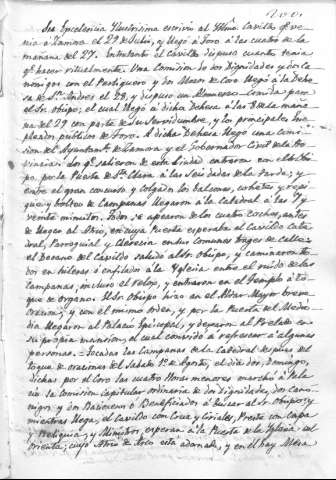 Su Excelencia Ilustrisima escrivió al Yltmo Cavildo qe ve-
nia a Zamora el 29 de Julio, y llegó á Toro á las cuatro de la
mañana del 27. Entretanto el Cavildo dispuso cuanto tenia
qe hacer ritualmente. Una Comision de dos Dignidades y dos Ca-
nonigos con el Pertiguero y dos Mozos de Coro llegó á la Dehe-
sa de Sn. Andres el 28, y dispuso un Almuerzo comida para
el Sr. obispo, el cual llegó á dicha Dehesa á las 8 de la maña-
na del 29 con parte de su Servidumbre, y los principales Em-
pleados publicos de Toro. A dicha Dehesa llegó una comi-
sion del Ayuntamto. de Zamora y el Gobernador Civil de la Pro-
vincia: los qe. salieron de esta Ciudad entraron con el obis-
po por la Puerta de Sta. Clara á las Seis dadas de la tarde; y
entre el gran concurso y colgados los balcones, cohetes y repi-
que y bolteo de Campanas llegaron á la Catedral á las 7 y
veinte minutos. Todos se apearon de los cuatro Coches, antes
de llegar al Atrio, en cuya Puerta esperaba el Cavildo Cate-
dral, Parroquial y Clerecia en sus comunes trages de calle:
el Decano del Cavildo saludó al Sr. Obispo, y caminaron to-
dos en hileras ó enfilados á la Yglesia entre el ruido de las
Campanas, incluso el Relox, y entraron en el Templo á to-
que de organo. El Sr. Obispo hizo en el Altar Mayor breve
Oracion; y con el mismo orden, y por la Puerta del Medio-
dia llegaron al Palacio Episcopal, y dejaron al Prelado en
su propia mansion, el cual convidó á refrescar á algunas
personas. = Tocadas las Campanas de la Catedral despues del
toque de oraciones del Sabado 1º de Agosto, el dia dos, Domingo,
dichas por el Coro las cuatro Horas menores marchó á Pala-
cio la Comision Capitular ordinaria de dos Dignidades, dos Cano-
nigos y dos Racioneros ó Beneficiados á buscar al Sr. obispo; y
mientras llega, el Cavildo con Cruz y Ciriales, Preste con capa
y Reliquia, y Ministros, esperan á la Puerta de la Yglesia al
oriente; cuyo Atrio de Arco está adornado, y en el hay Mesa